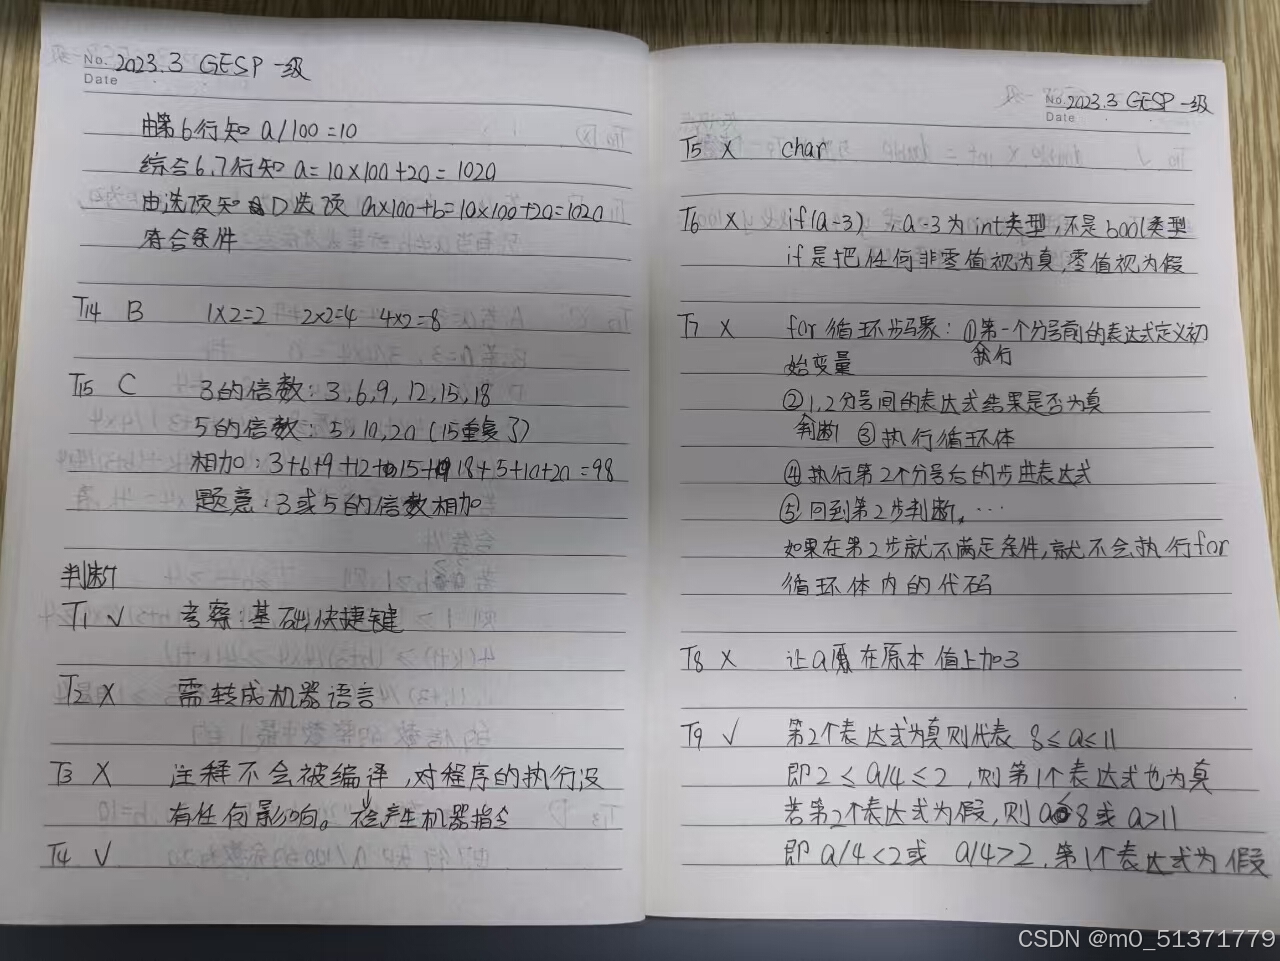 No. 2023.3 GESP 一级
Date
由第6行知 a/100=10
综合6.7行知 a=10×100+20=1020
由选项知 D选项 a×100+b=10×100+20=1020
符合条件
T14 B 1×2=2 2×2=4 4×2=8
T15 C 3的倍数:3,6,9,12,15,18
5的倍数:5,10,20(15重复了)
相加:3+6+9+12+15+18+5+10+20=98
题意:3或5的倍数相加
判断
T1 √ 考察:基础快捷键
T2 × 需转成机器语言
T3 × 注释不会被编译,对程序的执行没
有任何影响。不会产生机器指令
T4 √
No. 2023.3 GESP 一级
Date
T5 × char
T6 × if(a-3),a-3为int类型,不是bool类型
if是把任何非零值视为真,零值视为假
T7 × for循环步骤:①第一个分号前的表达式定义初
执行
始变量
②1,2分号间的表达式结果是否为真
判断 ③执行循环体
④执行第2个分号后的步进表达式
⑤回到第2步判断,…
如果在第2步就不满足条件,就不会执行for
循环体内的代码
T8 × 让a在原本值上加3
T9 √ 第2个表达式为真则代表 8≤a≤11
即2≤a/4≤2,则第1个表达式也为真
若第2个表达式为假,则a<8或a>11
即a/4<2或 a/4>2,第1个表达式为假
CSDN @m0_51371779